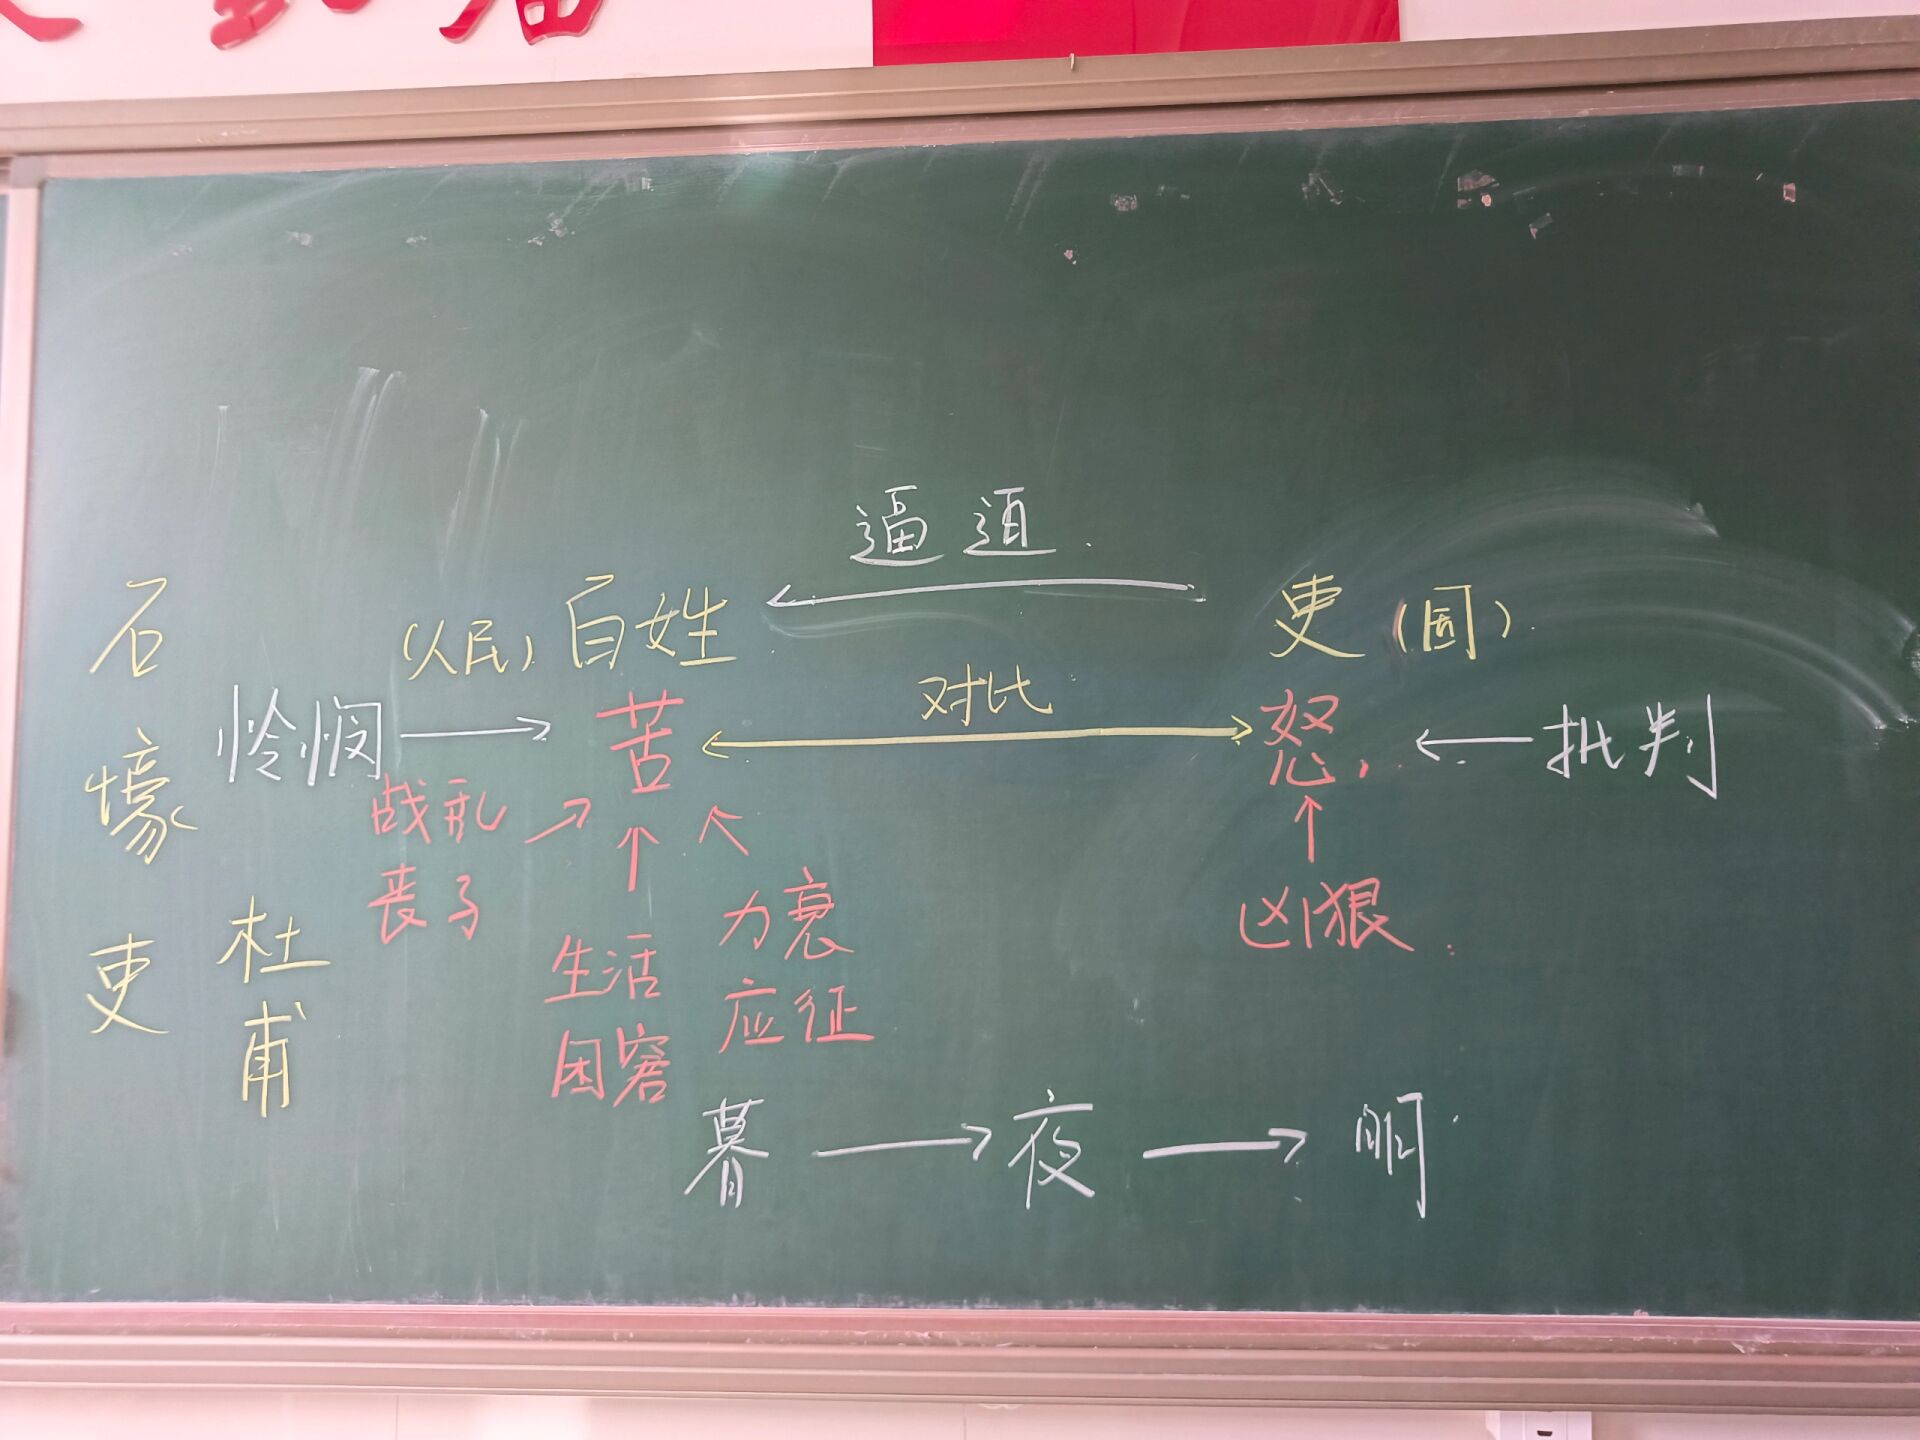 石壕吏
杜甫
逼迫
(人民)百姓
吏(国)
怜悯 → 苦 ←对比→ 怒 ← 批判
战乱
丧子
生活
困窘
力衰
应征
凶狠
暮 → 夜 → 明